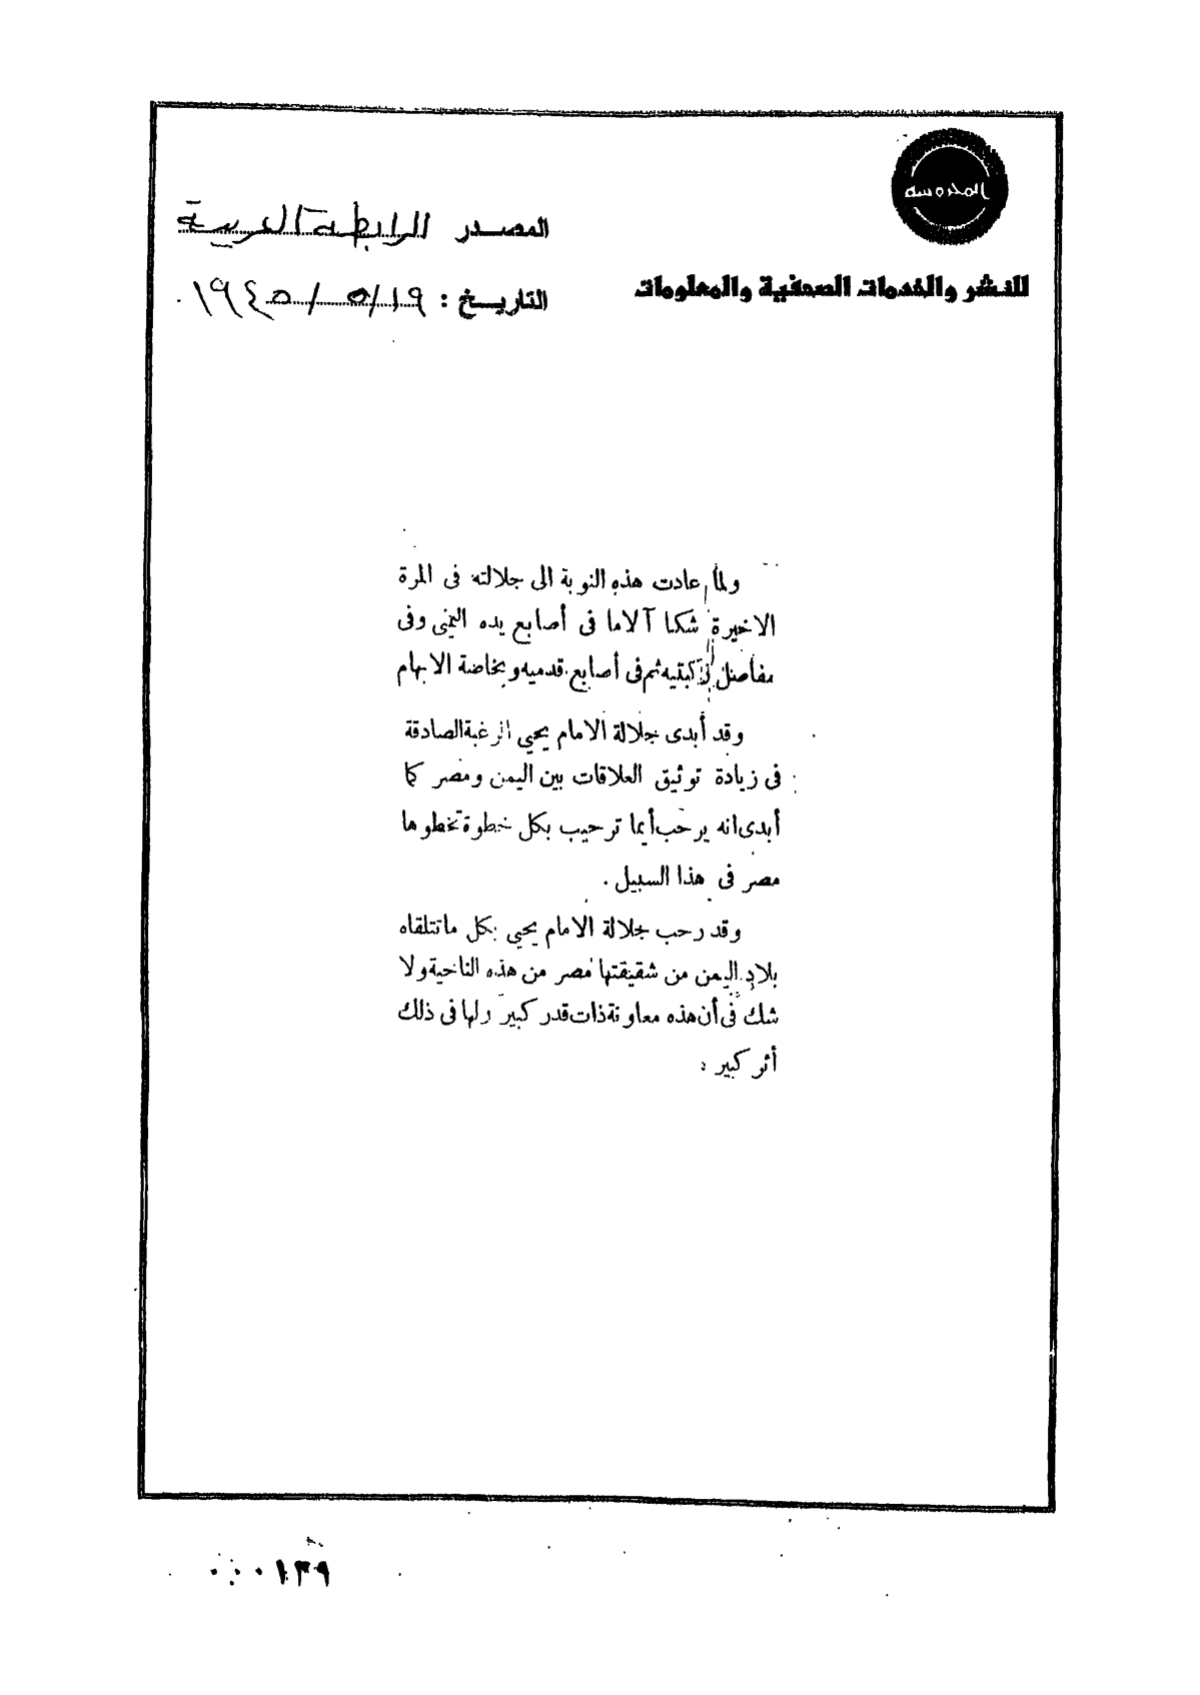 المحروسة
للنشر والخدمات الصحفية والمعلومات
المصدر الرابطة العربية
التاريخ : ١٩/٥/١٩٤٥
ولما عادت هذه النوبة الى جلالته فى المرة
الاخيرة شكا آلاما فى أصابع يده اليمنى وفى
مفاصل ركبتيه ثم فى أصابع قدميه وبخاصة الابهام
وقد أبدى جلالة الامام يحيي الرغبة الصادقة
فى زيادة توثيق العلاقات بين اليمن ومصر كما
أبدى انه يرحب أيما ترحيب بكل خطوة تخطوها
مصر فى هذا السبيل .
وقد رحب جلالة الامام يحيي بكل ماتتلقاه
بلاد اليمن من شقيقتها مصر من هذه الناحية ولا
شك فى أن هذه معاونة ذات قدر كبير ولها فى ذلك
أثر كبير :
٠٠٠١٣٩